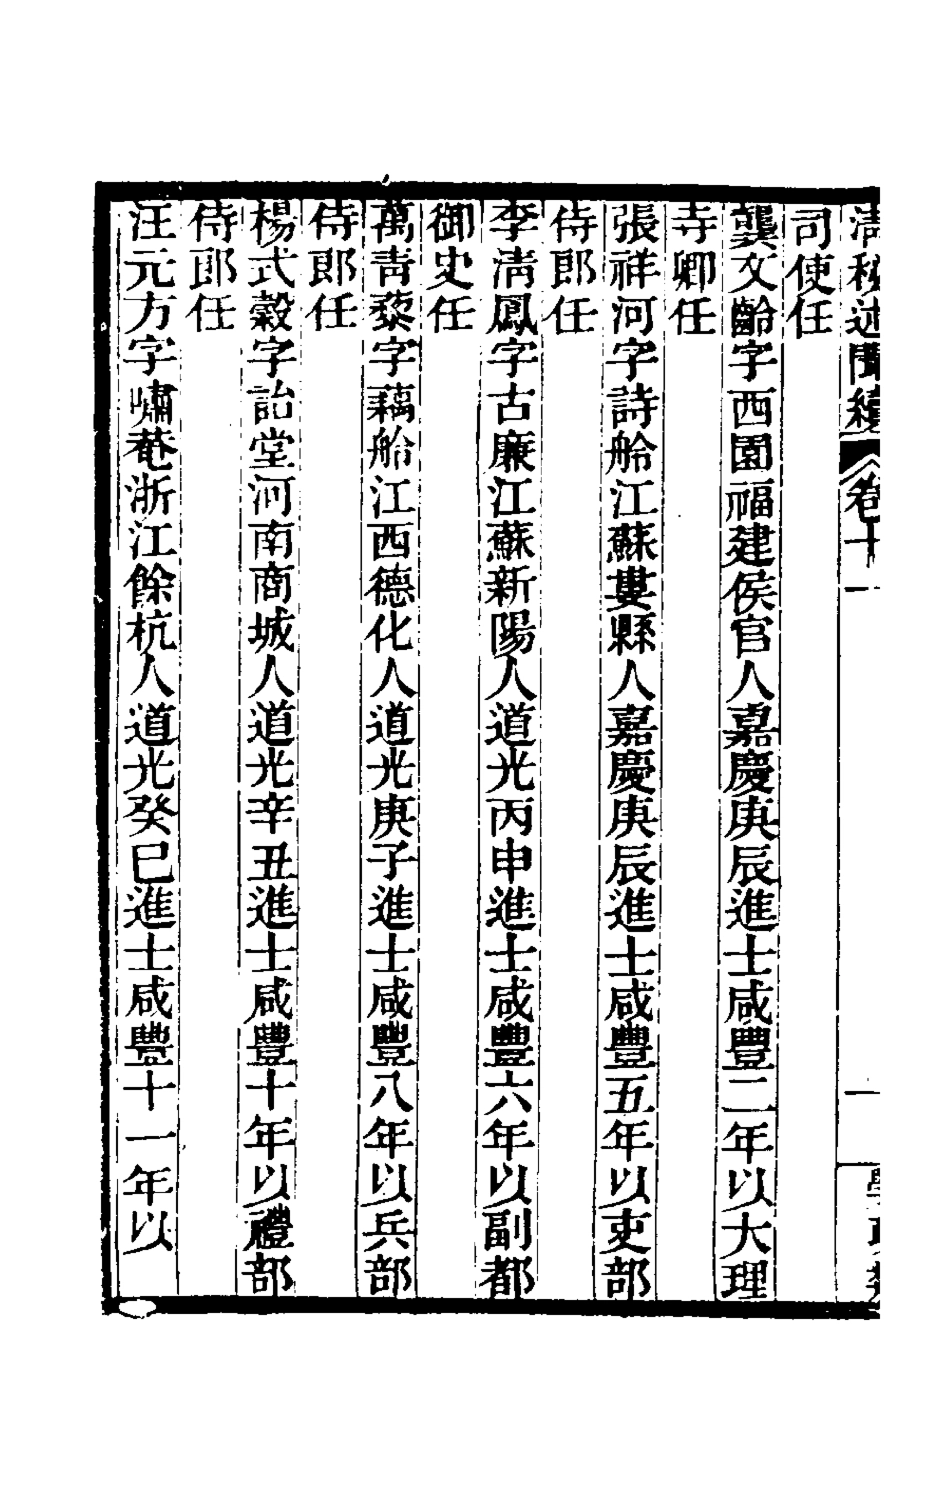 清秘述聞續 卷十 一
司使任
龔文齡字西園福建侯官人嘉慶庚辰進士咸豐二年以大理
寺卿任
張祥河字詩舲江蘇婁縣人嘉慶庚辰進士咸豐五年以吏部
侍郎任
李清鳳字古廉江蘇新陽人道光丙申進士咸豐六年以副都
御史任
萬青藜字藕舲江西德化人道光庚子進士咸豐八年以兵部
侍郎任
楊式穀字詒堂河南商城人道光辛丑進士咸豐十年以禮部
侍郎任
汪元方字嘯菴浙江餘杭人道光癸巳進士咸豐十一年以